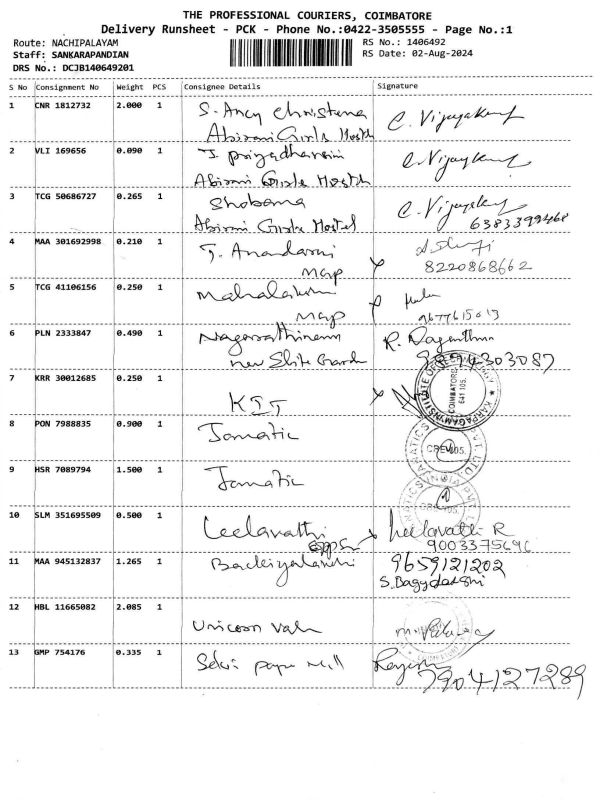 THE PROFESSIONAL COURIERS, COIMBATORE
Delivery Runsheet - PCK - Phone No.:0422-3505555 - Page No.:1
Route: NACHIPALAYAM
RS No.: 1406492
Staff: SANKARAPANDIAN
RS Date: 02-Aug-2024
DRS No.: DCJB140649201
S No Consignment No Weight PCS Consignee Details Signature
1 CNR 1812732 2.000 1 S. Ancy Christena C. Vijayakumar
Abirami Girls Hostel
2 VLI 169656 0.090 1 J. Priyadharsini C. Vijaykumar
Abirami Girls Hostel
3 TCG 50686727 0.265 1 Shobana C. Vijaykumar
Abirami Girls Hostel 6383399468
4 MAA 301692998 0.210 1 Map
8220868662
5 TCG 41106156 0.250 1 Mahalakshmi
Map 9677615013
6 PLN 2333847 0.490 1 Nagarathinam R.
new Elite Garden
7 KRR 30012685 0.250 1 KIT
KARPAGAM INSTITUTE OF TECHNOLOGY
COIMBATORE
641 105.
8 PON 7988835 0.900 1 Jamatic
9 HSR 7089794 1.500 1 Jamatic
10 SLM 351695509 0.500 1 Leelavathi Leelavathi R
9003375696
11 MAA 945132837 1.265 1 9659121202
S.
12 HBL 11665082 2.085 1 Unicorn Valv
13 GMP 754176 0.335 1 Selvi paper mill
7904127289